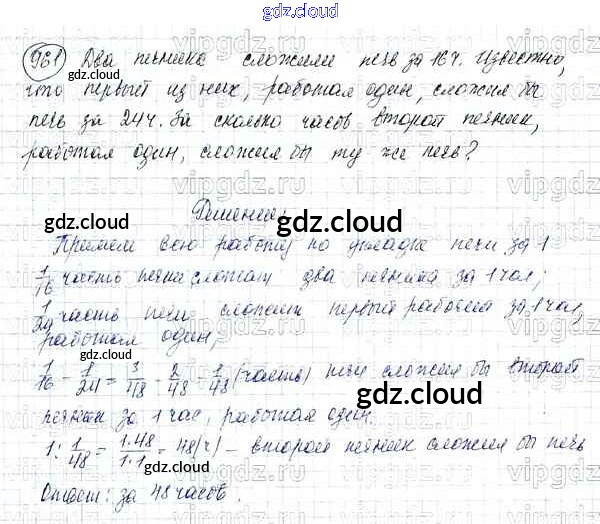 gdz.cloud
961 Два печника сложили печь за 16 ч. Известно,
что первый из них, работая один, сложил бы
печь за 24 ч. За сколько часов второй печник,
работая один, сложил бы ту же печь?
Решение:
gdz.cloud gdz.cloud gdz.cloud
Примем всю работу по укладке печи за 1
1/16 часть печи сложат два печника за 1 час;
1/24 часть печи сложит первый рабочий за 1 час,
работая один;
1/16 - 1/24 = 3/48 - 2/48 = 1/48 (часть) печи сложил бы второй
печник за 1 час, работая один.
1 : 1/48 = 1·48/1·1 = 48 (ч) – второй печник сложил бы печь
Ответ: за 48 часов.
gdz.cloud gdz.cloud gdz.cloud
gdz.cloud
vipgdz